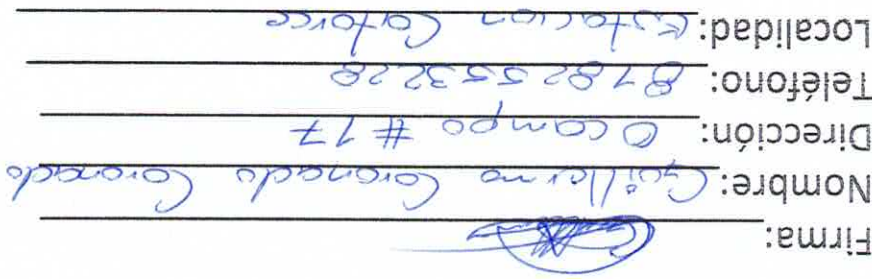 Firma:
Nombre: Guillermo Coronado Coronado
Dirección: Ocampo #17
Teléfono: 8782553228
Localidad: Estacion Catorce